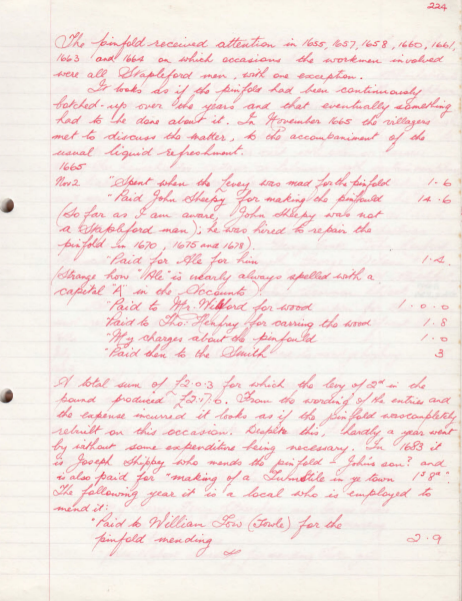 224
The pinfold received attention in 1655, 1657, 1658, 1660, 1661,
1663 and 1664 on which occasions the workmen involved
were all Stapleford men, with one exception.
It looks as if the pinfold had been continuously
botched-up over the years and that eventually something
had to be done about it. In November 1665 the villagers
met to discuss the matter, to the accompaniment of the
usual liquid refreshment.
1665
Nov 2 "Spent when the Levey was mad for the pinfold 1 - 6
"Paid John Sheepy for making the pinfould 14 - 6
(So far as I am aware, John Sheepy was not
a Stapleford man); he was hired to repair the
pinfold in 1670, 1675 and 1678).
"Paid for Ale for him 1 - 4.
(Strange how "Ale" is nearly always spelled with a
capital "A" in the Accounts)
"Paid to Mr. Willford for wood 1 - 0 - 0
Paid to Tho: Henfray for carring the wood 1 . 8
"My charges about the pinfould 1 - 0
"Paid then to the Smith 3
A total sum of £2.0.3 for which the levy of 2d in the
pound produced £2.7.0. From the wording of the entries and
the expense incurred it looks as if the pinfold was completely
rebuilt on this occasion. Despite this, hardly a year went
by without some expenditure being necessary. In 1683 it
is Joseph Shippy who mends the pinfold - John's son? and
is also paid for "making of a in ye town 1s 8d".
The following year it is a local who is employed to
mend it:
"Paid to William Tow (Towle) for the
pinfold mending 2 - 9